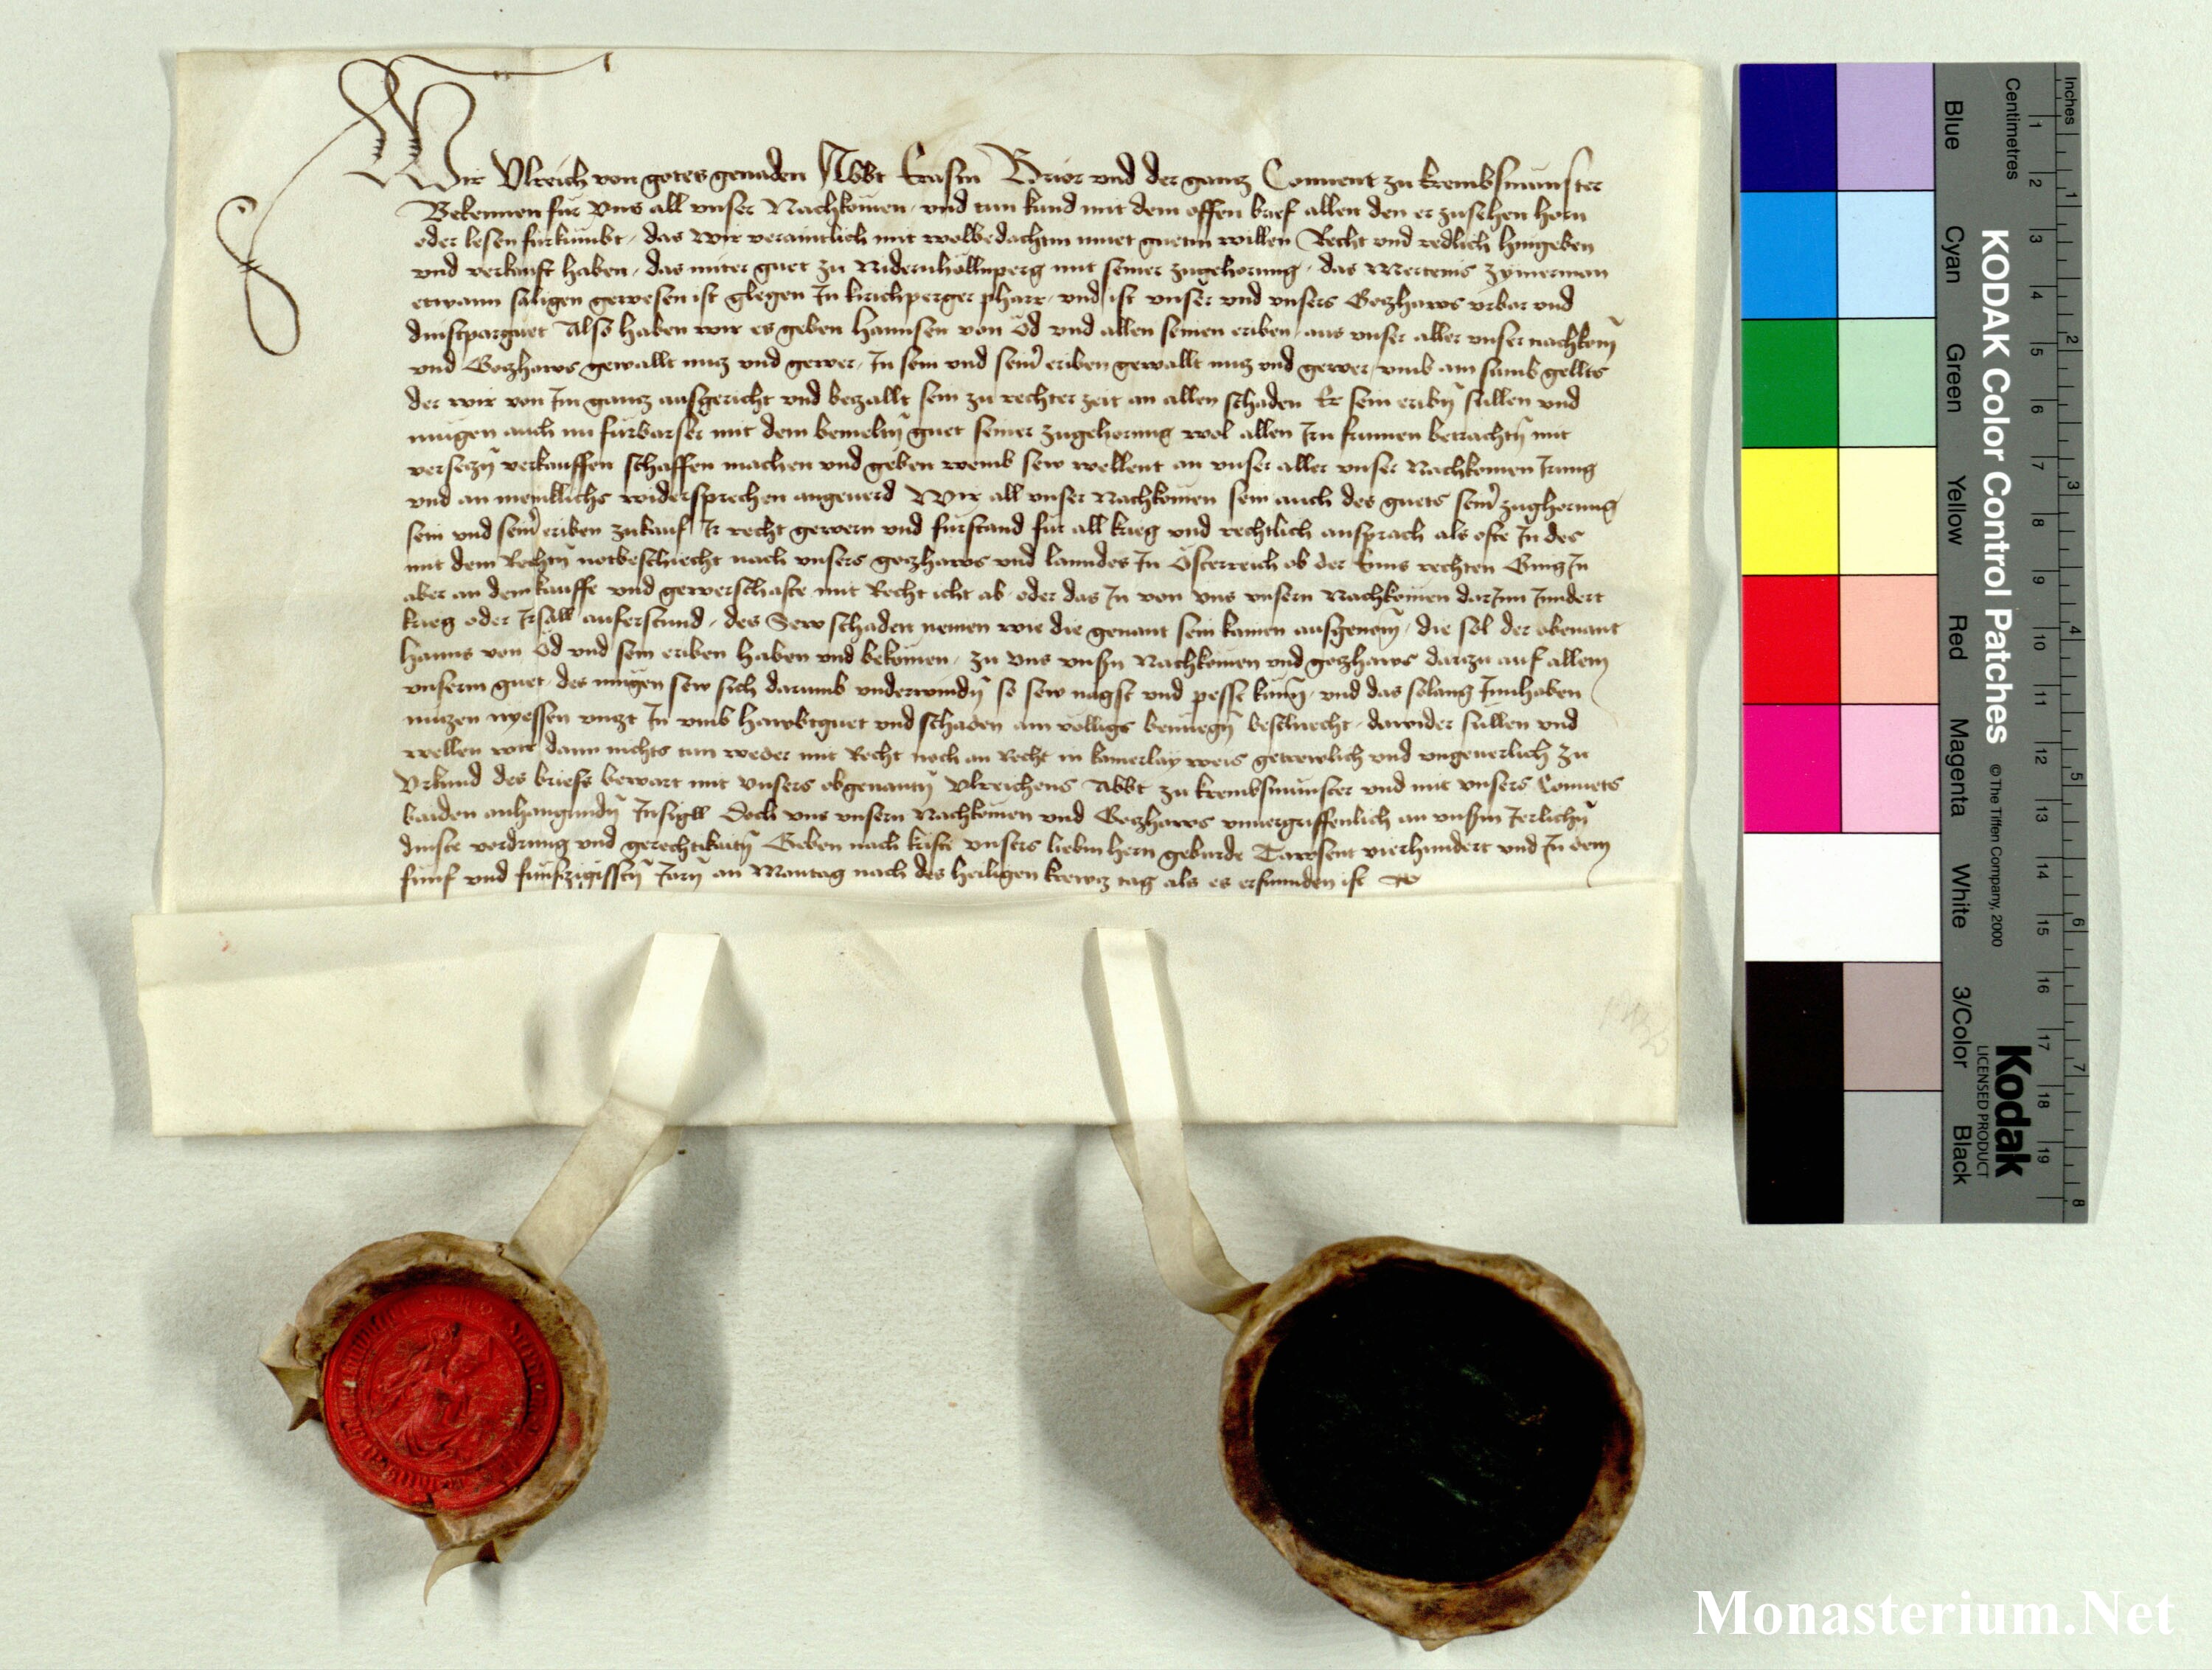 Wir Vlreich von gotes genaden Abbt Erasm Brior vnd der gancz Conuent zu krembsmunster
Bekennen fur vns all vnser Nachkomen vnd tun kund mit dem offen brief allen den er zusehen horn
oder lesen furkumbt das wir veraintlich mit wolbedachtm muet guetm willen Recht vnd redlich hingeben
vnd verkauft haben das guet zu Nidernhöllnperg mit seiner zugehorung das Mertenis zymerman
etwann säligen gewesen ist glegen In kirichperger pharr vnd ist vnser vnd vnsers Gotzhaws vrbar vnd
dinstparguet Also haben wir es geben Hannsen von Öd vnd allen seinen eriben aus vnser aller vnser nachkom̄
vnd Gotzhaws gewallt nutz vnd gewer In sein vnd sein̄ eriben gewallt nutz vnd gewer vmb ain sumb gellts
der wir von Im gantz ausgericht vnd betzallt sein zu rechter zeit an allen schaden Er sein eribn̄ sullen vnd
mugen auch nu furbarser mit dem bemeltn̄ guet seiner zugehorung wol allen Irn frumen betrachtn̄ mit
versetzn̄ verkauffen schaffen machen vnd geben wemb sew wellent an vnser aller vnser Nachkomen Irrung
vnd an menikliches widersprechen angeuerd Wir all vnser Nachkomen sein auch des guets sein̄ zughorung
sein vnd sein̄ eriben zukauf Ir recht gewern vnd furstand fur all krieg vnd rechtlich ansprach als offt In des
mit dem Rechtn̄ notbeschiecht nach vnsers gotzhaws vnd lanndes In Österreich ob der Enns rechten Ging In
aber an dem kauffe vnd gewerschafte mit Recht icht ab oder das In von vns vnsern Nachkomen darInn Inndert
krieg oder Irsäll auferstund des Sew schaden nemen wie die genant sein kainen ausgenom̄ die sol der obenant
Hanns von Öd vnd sein eriben haben vnd bekomen zu vns vnsn̄ Nachkomen vnd gotzhaws dartzu auf allem
vnserm guet des mugen sew sich darumb vnderwindn̄ so sew nagst vnd pesst kun̄n vnd das solang Innhaben
nutzen nyessen vntzt In vmb hawbtguet vnd schaden ain volligs benuegn̄ beschiecht dawider sullen vnd
wellen wir dann nichts tun weder mit Recht noch an Recht in kainerlay weis getrewlich vnd vngeuerlich Zu
Vrkund des briefs bewart mit vnsers obgenantn̄ Vlreichens Abbt zu krembsmunster vnd mit vnsers Conuets
baiden anhangundn̄ Insigll Doch vns vnsern Nachkomen vnd Gotzhaws vnuergriffenlich an vnsm̄ Jerlichn̄
dinste vordrung vnd gerechtikaitn̄ Geben nach kristi vnsers liebm hern geburde Tawsent vierhundert vnd In dem
funf vnd funfzigisstn̄ Jarn̄ an Mantag nach des heiligen krewtz tag als es erfunden ist
Inches
Centimetres
1 2 3 4 5 6 7 8 9 10 11 12 13 14 15 16 17 18 19
1 2 3 4 5 6 7 8
Blue Cyan Green Yellow Red Magenta White 3/Color Black
KODAK Color Control Patches
© The Tiffen Company, 2000
Kodak
LICENSED PRODUCT
Monasterium.Net